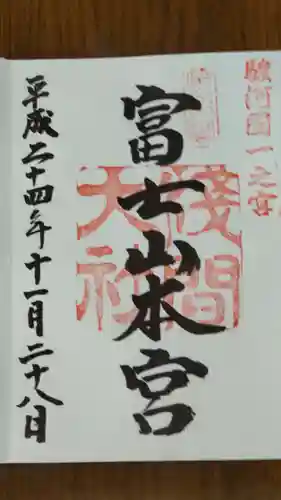 駿河国一之宮
富士山本宮
浅間
大社
平成二十四年十一月二十八日